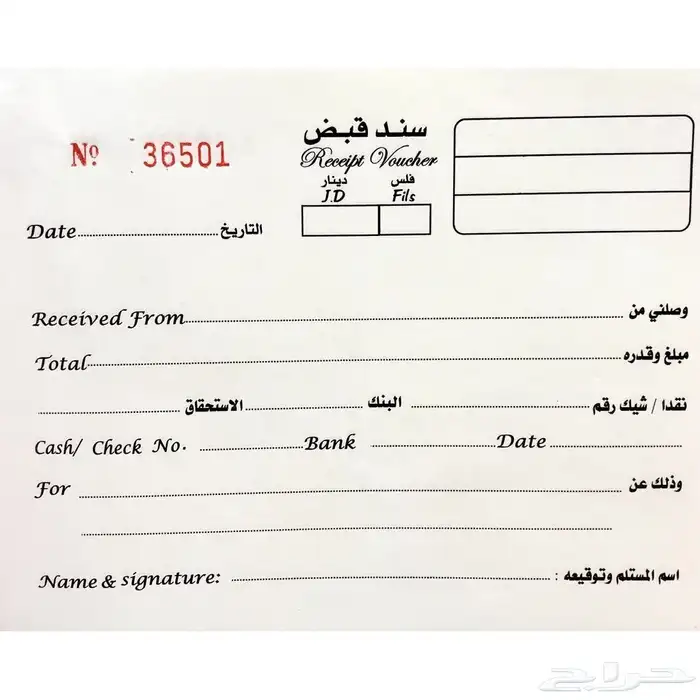 سند قبض
Receipt Voucher
Nº 36501
دينار فلس
J.D Fils
Date التاريخ
Received From وصلني من
Total مبلغ وقدره
نقدا / شيك رقم البنك الاستحقاق
Cash/ Check No. Bank Date
For وذلك عن
Name & signature: اسم المستلم وتوقيعه :
حراج